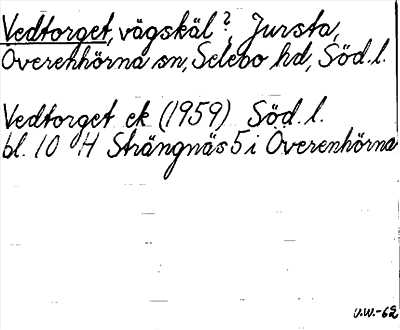 Vedtorget, vägskäl?, Jursta,
Överenhörna sn, Selebo hd, Söd.l.
Vedtorget ek (1959) Söd.l.
bl. 10 H Strängnäs 5 i Överenhörna
U.W.-62